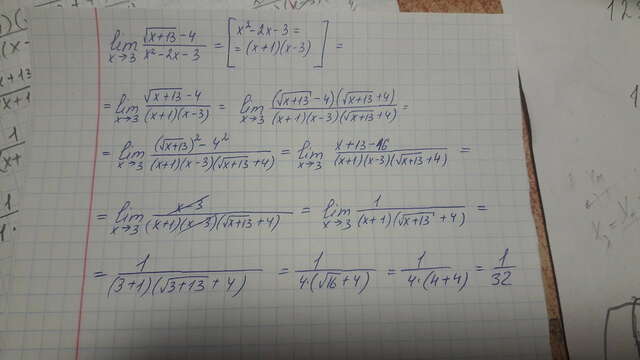 lim x→3 (√(x+13) - 4)/(x² - 2x - 3) = [x² - 2x - 3 = = (x+1)(x-3)] =
= lim x→3 (√(x+13) - 4)/((x+1)(x-3)) = lim x→3 ((√(x+13) - 4)(√(x+13) + 4))/((x+1)(x-3)(√(x+13) + 4)) =
= lim x→3 ((√(x+13))² - 4²)/((x+1)(x-3)(√(x+13) + 4)) = lim x→3 (x+13-16)/((x+1)(x-3)(√(x+13) + 4)) =
= lim x→3 (x-3)/((x+1)(x-3)(√(x+13) + 4)) = lim x→3 1/((x+1)(√(x+13) + 4)) =
= 1/((3+1)(√(3+13) + 4)) = 1/(4·(√16 + 4)) = 1/(4·(4+4)) = 1/32